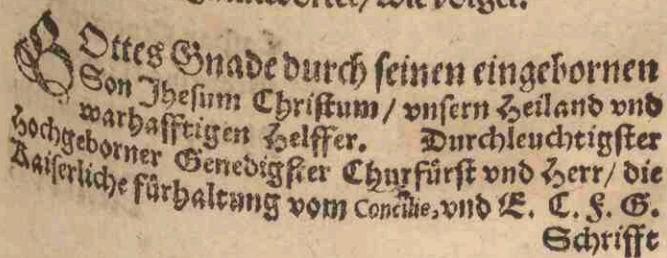 wie volget.
GOttes Gnade durch seinen eingebornen
Son Jhesum Christum / vnsern Heiland vnd
warhafftigen Helffer. Durchleuchtigster
Hochgeborner Genedigster Churfürst vnd Herr / die
Kaiserliche fürhaltung vom Concilie, vnd E. C. F. G.
Schrifft